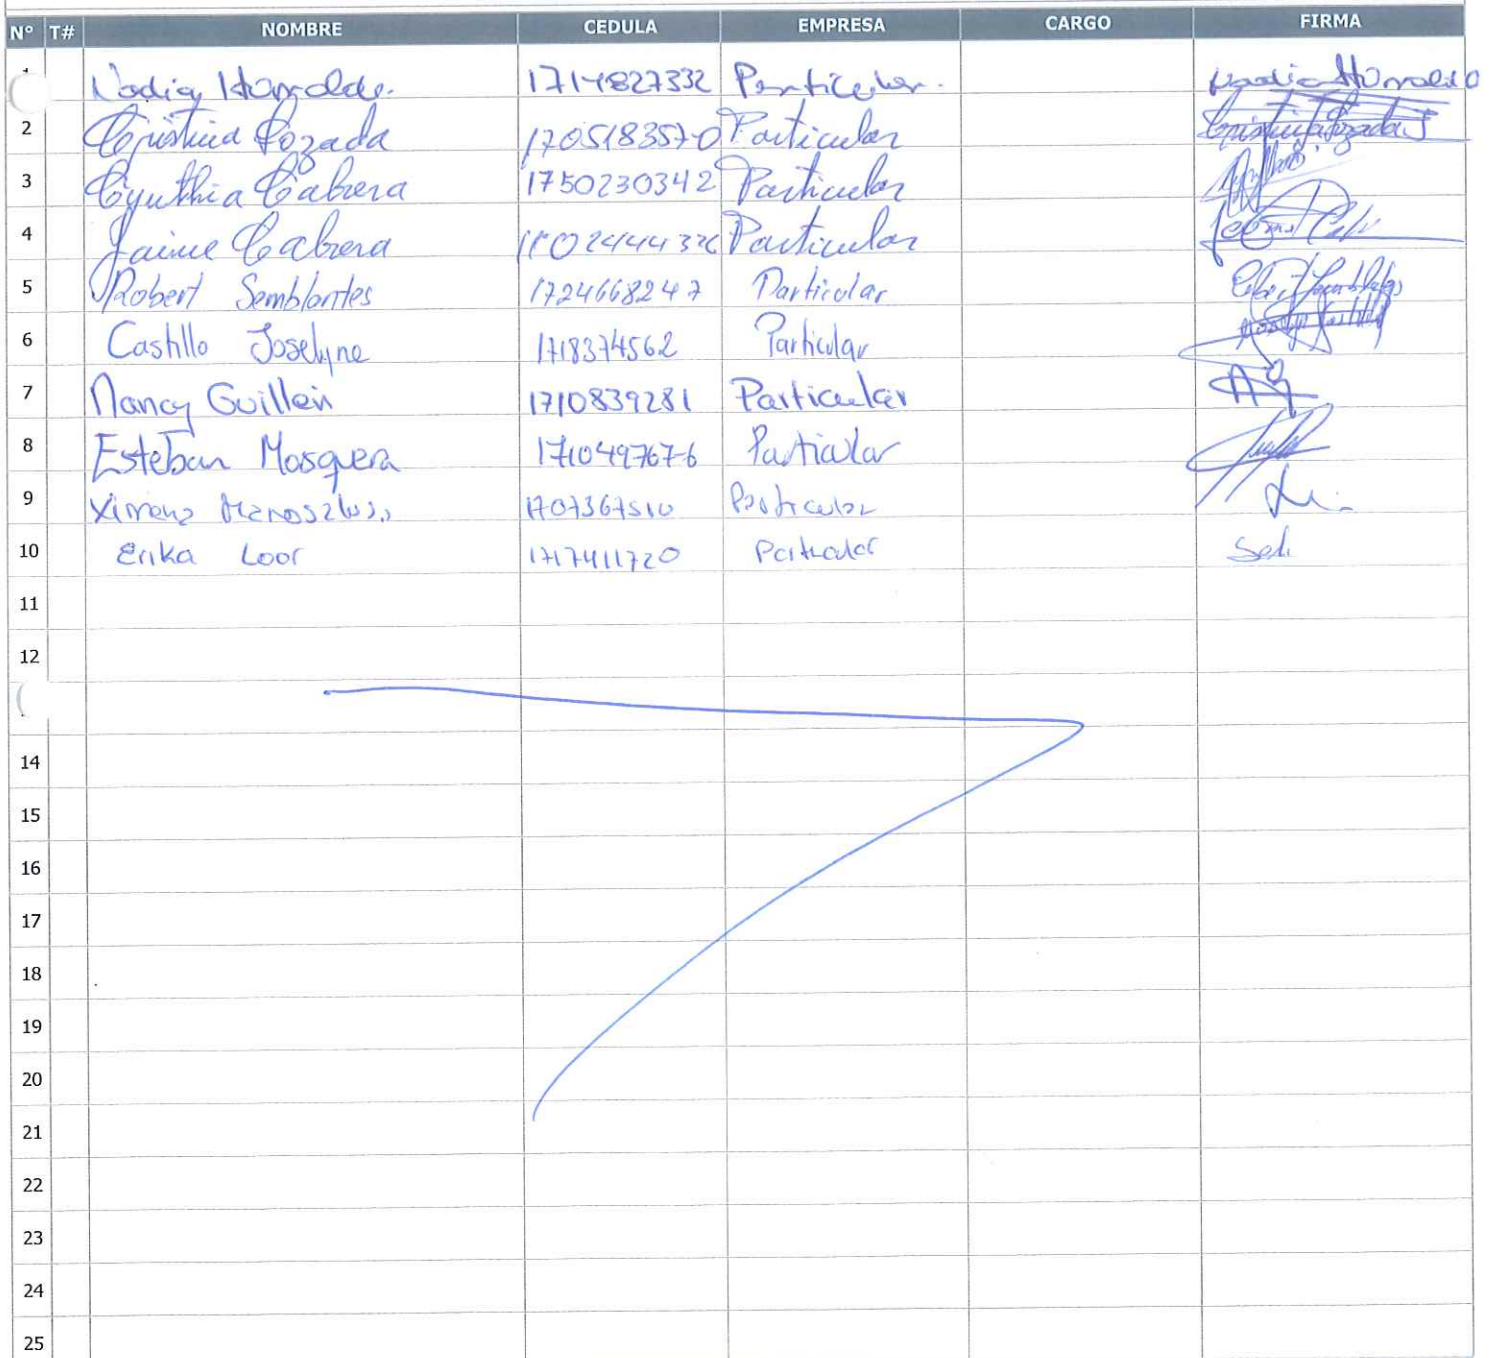 N° T# NOMBRE CEDULA EMPRESA CARGO FIRMA
Nadia 1714827332 Particular.
2 Cristina Pozada 170518357-0 Particular
3 Cynthia Cabrera 1750230342 Particular
4 Jaime Cabrera Particular
5 Robert Semblantes 1724668247 Particular
6 Castillo Joselyne 1718374562 Particular
7 Nancy Guillen 1710839281 Particular
8 Esteban Mosquera 171049767-6 Particular
9 Ximena 1707367510 Particular
10 Erika Loor 1717411720 Particular
11
12
14
15
16
17
18
19
20
21
22
23
24
25